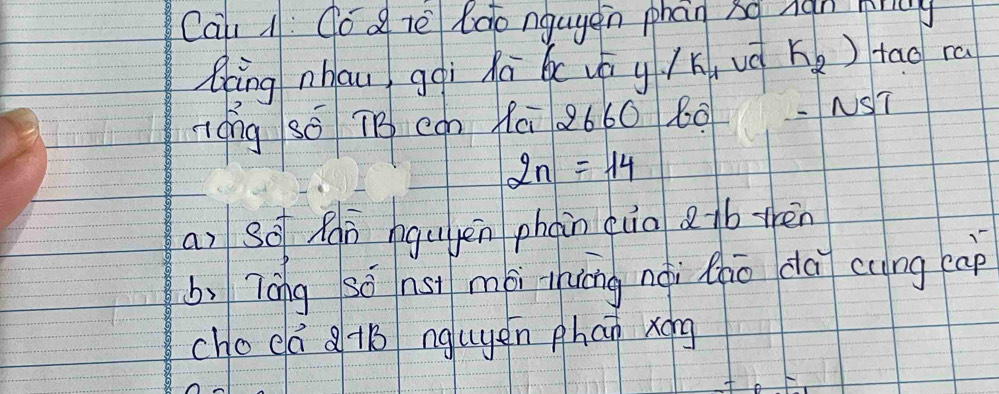 Câu 1: Có 2 tế bào nguyên phân số lần
bằng nhau, gọi là x và y (K1 và K2) tạo ra
tổng số TB con là 2660 bộ - NST
2n = 14
a> Số lần nguyên phân của 2 tb trên
b> Tổng số nst môi trường nội bào đã cung cấp
cho cả 2 TB nguyên phân xong